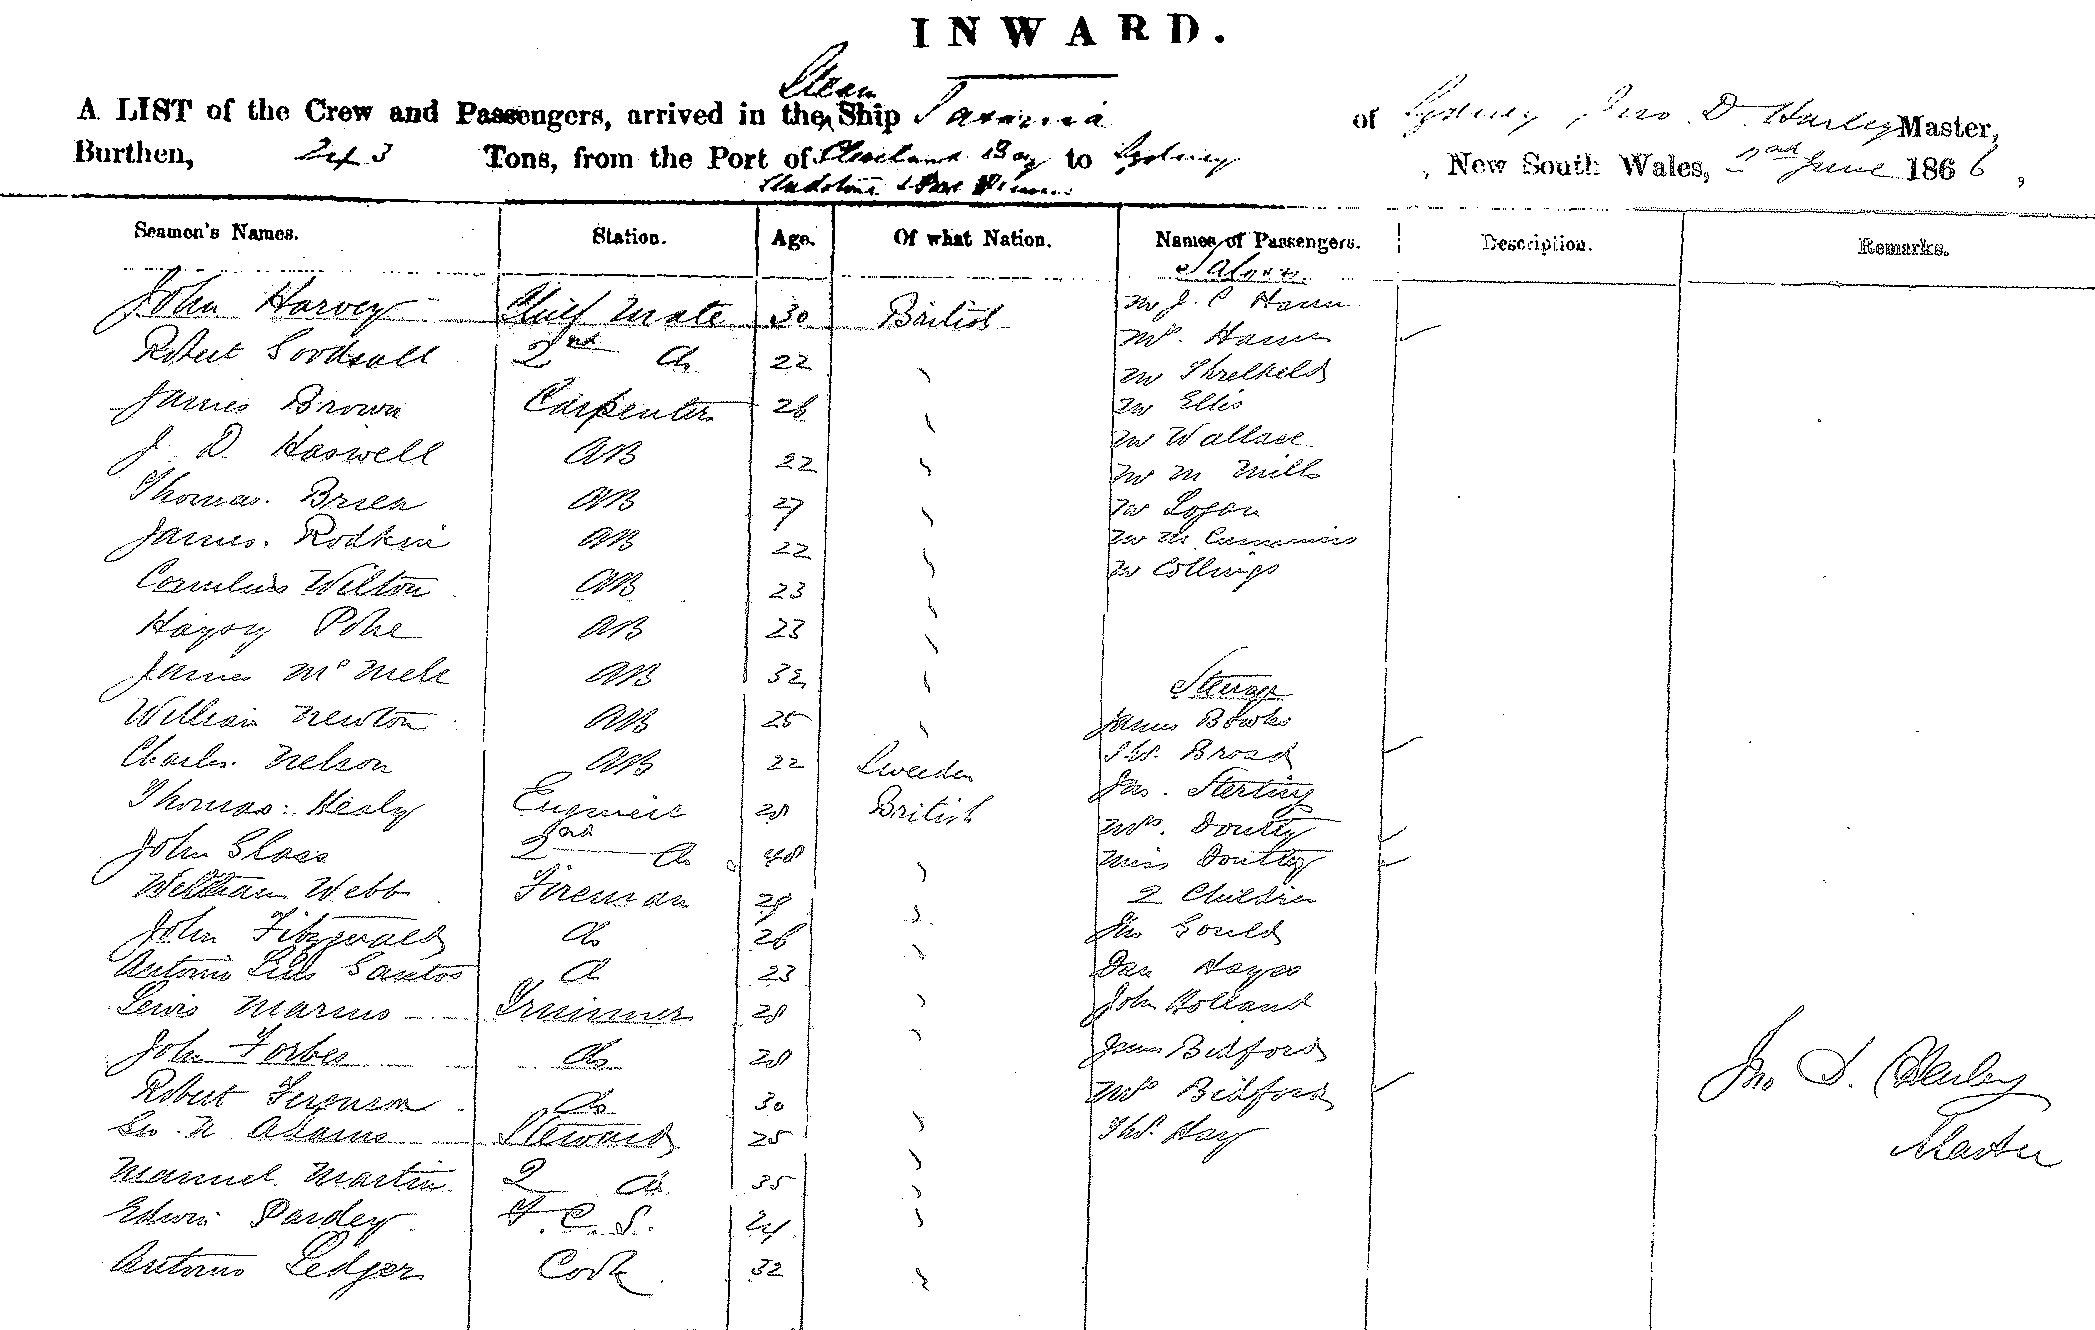 INWARD.
Steam
A LIST of the Crew and Passengers, arrived in the Ship Tarania of Sydney Jno. D. Harley Master,
Burthen, 243 Tons, from the Port of Cleveland Bay to Sydney, New South Wales, 2nd June 1866,
Gladstone & Port Denison
Seamen's Names. Station. Age. Of what Nation. Names of Passengers. Description. Remarks.
Saloon
John Harvey Chief Mate 30 British Mr J. C Hann
Mrs. Hann
Robert Goodsall 2nd Do 22 Mr Threlkeld
James Brown Carpenter 26 Mr Ellis
J. D. Haswell AB 22 Mr Wallace
Mr M Mills
Thomas. Brien AB 27 Mr Logan
James. Rodkin AB 22 Mr Cummins
Cornelius Wilton AB 23 Mr Collings
AB 23
James AB 32 Steerage
William Newton AB 25 James
Charles. Nelson AB 22 Sweeden Thos. Broad
Thomas. Healy Engineer 28 British Jas. Sterling
Mrs. Douttey
John Glass 2nd Do 40 Miss Douttey
William Webb Fireman 29 2 Children
John Fitzgerald Do 26 Jno Gould
Antonio Santos Do 23 Dan Hayes
Lewis Marius Trimmer 28 John Holland
John Forbes Do 28 James Bidford
Robert Ferguson Do 30 Mrs Bidford
Geo. N Adams Steward 25 Thos. Hay
Jno D. Harley
Master
Manuel. Martin 2 Do 35
Edwin Pardey F. C. S. 24
Antonio Ledger Cook 32